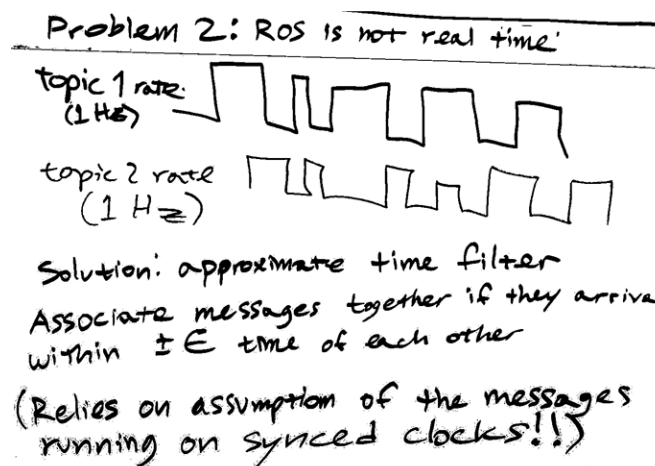 Problem 2: ROS is not real time
topic 1 rate
(1 Hz)
topic 2 rate
(1 Hz)
Solution: approximate time filter
Associate messages together if they arrive
within ± ∈ time of each other
(Relies on assumption of the messages
running on synced clocks!!)